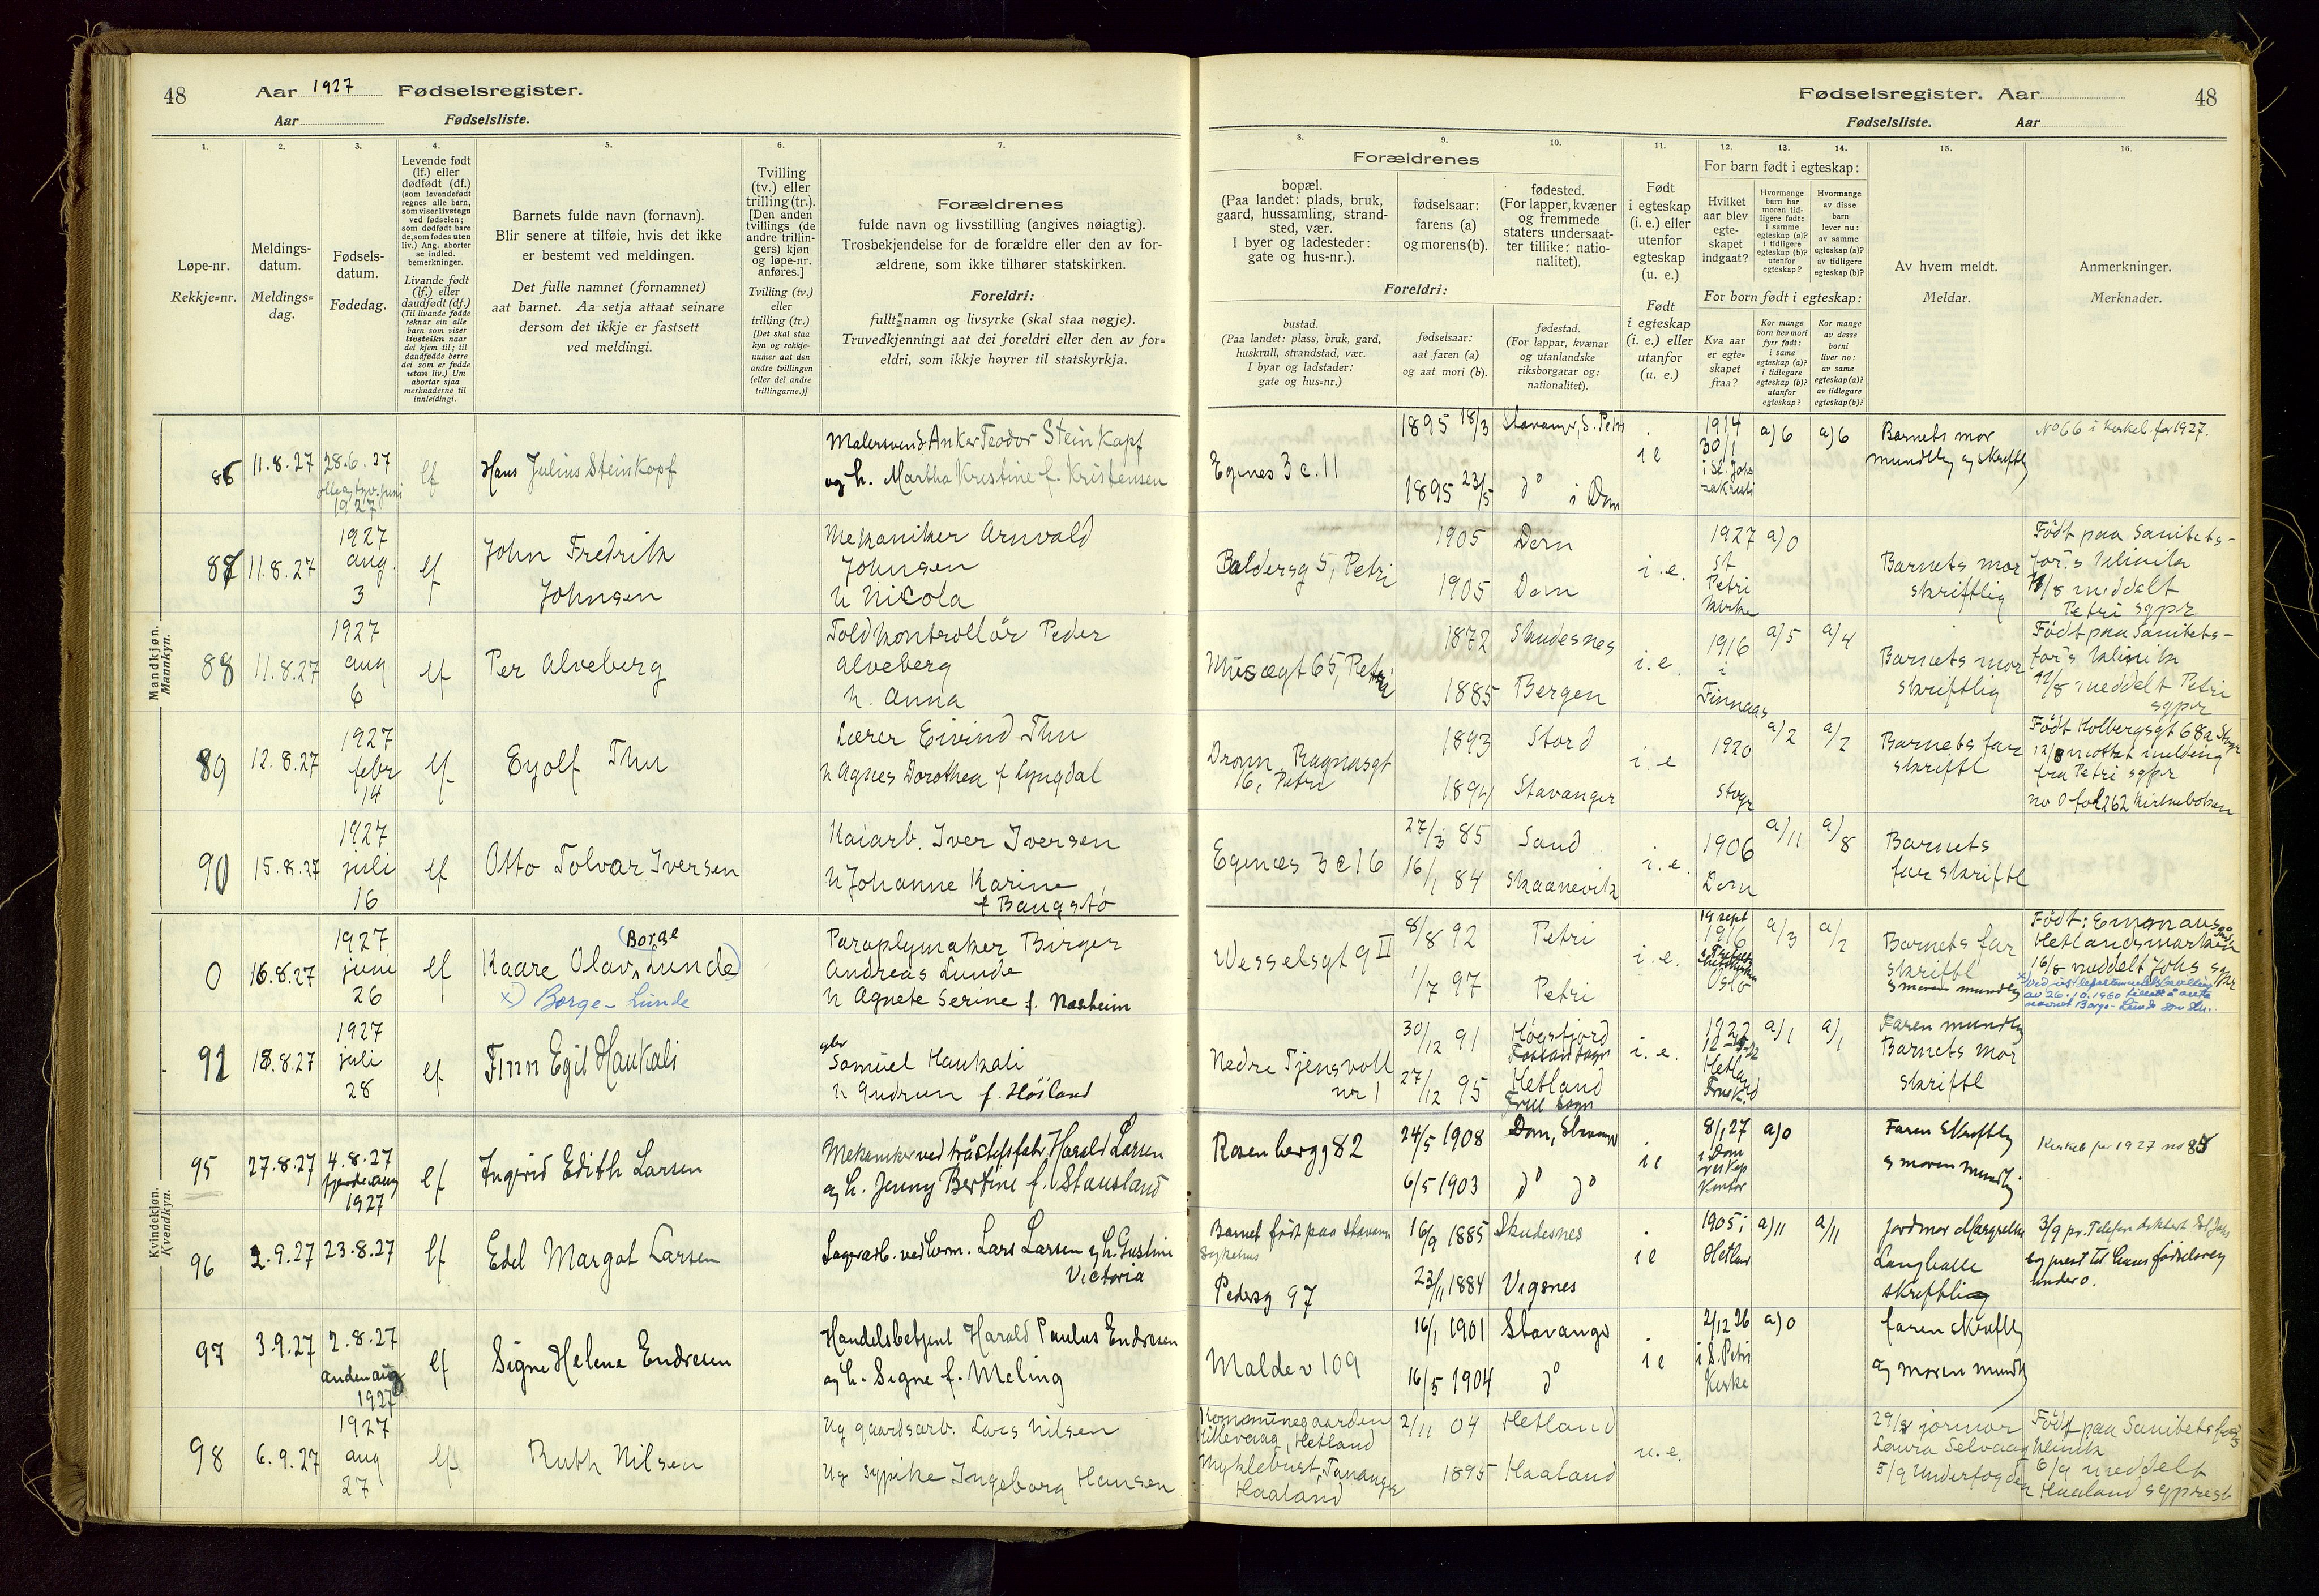 48
Aar 1927 Fødselsregister.
Aar Fødselsliste.
1.
Løpe-nr.
Rekkje-nr.
2.
Meldings-
datum.
Meldings-
dag.
3.
Fødsels-
datum.
Fødedag.
4.
Levende født
(lf.) eller
dødfødt (df.)
(som levendefødt
regnes alle barn,
som viser livstegn
ved fødselen;
som dødfødt bare
de, som fødes uten
liv.) Ang. aborter
se indled.
bemerkninger.
Livande født
(lf.) eller
daudfødt (df.)
(Til livande fødde
reknar ein alle
barn som viser
livsteikn naar
dei kjem til; til
daudfødde berre
dei som er fødde
utan liv.) Um
abortar sjaa
merknaderne til
innleidingi.
5.
Barnets fulde navn (fornavn).
Blir senere at tilføie, hvis det ikke
er bestemt ved meldingen.
Det fulle namnet (fornamnet)
aat barnet. Aa setja attaat seinare
dersom det ikkje er fastsett
ved meldingi.
6.
Tvilling
(tv.) eller
trilling (tr.).
[Den anden
tvillings (de
andre trillin-
gers) kjøn
og løpe-nr.
anføres.]
Tvilling (tv.)
eller
trilling (tr.)
[Det skal staa
kyn og rekkje-
numer aat den
andre tvillingen
(eller dei andre
trillingarne.)]
7.
Forældrenes
fulde navn og livsstilling (angives nøiagtig).
Trosbekjendelse for de forældre eller den av for-
ældrene, som ikke tilhører statskirken.
Foreldri:
fullt namn og livsyrke (skal staa nøgje).
Truvedkjenningi aat dei foreldri eller den av for-
eldri, som ikkje høyrer til statskyrkja.
Mandkjøn.
Mannkyn.
86 11.8.27 28.6.27 lf Hans Julius Steinkopf
1927
Malersvend Anker Teodor Steinkopf
og h. Martha Kristine f. Kristensen
87 11.8.27 1927 aug. 3 lf John Fredrik
Johnsen
Mekaniker Arnvald
Johnsen
h Nicola
88 11.8.27 1927 aug 6 lf Per Alveberg
Toldkontrollör Peder
Alveberg
h. Anna
89 12.8.27 1927 febr 14 lf Eyolf Thu
Lærer Eivind Thu
h Agnes Dorothea f Lyngdal
90 15.8.27 1927 juli 16 lf Otto Tolvar Iversen
Kaiarb. Iver Iversen
h Johanne Karine
f Baugstö
0 16.8.27 1927 juni 26 lf Kaare Olav (Borge Lunde)
x) Borge-Lunde
Paraplymaker Birger
Andreas Lunde
h Agnete Serine f. Nasheim
91 18.8.27 1927 juli 28 lf Finn Egil Haukali
Samuel Haukali
h Gudrun f. Höiland
Kvindekjøn.
Kvendkyn.
95 27.8.27 4.8.27 fjerde aug 1927 lf Ingrid Edith Larsen
Mekaniker ved Harald Larsen
og h. Jenny Bertine f. Stausland
96 2.9.27 23.8.27 lf Edel Margot Larsen
Lars Larsen og h. Gustine
Victoria
97 3.9.27 2.8.27 anden aug 1927 lf Signe Helene Endresen
Handelsbetjent Harald Paulus Endresen
og h. Signe f. Meling
98 6.9.27 1927 aug 27 lf Ruth Nilsen
Ug gaardsarb. Lars Nilsen
Ug sypike Ingeborg Hansen
Fødselsregister. Aar
48
Fødselsliste. Aar
Forældrenes
8.
bopæl.
(Paa landet: plads, bruk,
gaard, hussamling, strand-
sted, vær.
I byer og ladesteder:
gate og hus-nr.).
9.
fødselsaar:
farens (a)
og morens (b).
10.
fødested.
(For lapper, kvæner
og fremmede
staters undersaat-
ter tillike: natio-
nalitet).
Foreldri:
bustad.
(Paa landet: plass, bruk, gard,
huskrull, strandstad, vær.
I byar og ladstader:
gate og hus-nr.)
fødselsaar:
aat faren (a)
og aat mori (b).
fødestad.
(For lappar, kvænar
og utanlandske
riksborgarar og:
nationalitet).
11.
Født
i egteskap
(i. e.) eller
utenfor
egteskap
(u. e.)
Født
i egteskap
(i. e.) eller
utanfor
(u. e.)
12.
13.
14.
For barn født i egteskap:
Hvilket
aar blev
egte-
skapet
indgaat?
Hvormange
barn har
moren tid-
ligere født:
i samme
egteskap (a)?
i tidligere
egteskap (b)?
utenfor
egteskap?
Hvormange
av disse
barn
lever nu:
av samme
egteskap (a)?
av tidligere
egteskap (b)?
For born født i egteskap:
Kva aar
er egte-
skapet
fraa?
Kor mange
born hev mori
fyrr født:
i same
egteskap (a)?
i tidlegare
egteskap (b)?
utanfor
egteskap?
Kor mange
av desse
borni
liver no:
av same
egteskap (a)?
av tidlegare
egteskap (b)?
15.
Av hvem meldt.
Meldar.
16.
Anmerkninger.
Merknader.
Egenes 3 c. 11 1895 18/3 Stavanger, S. Petri
1895 23/5 do i Dom
i e 1914 30/1 a) 6 a) 6
Barnets mor
mundtlig og skriftlig
No 66 i kirkeb. for 1927.
Baldersg 5, Petri 1905 Dom
1905 Dom
i.e. 1927 St Petri kirke a) 0
Barnets mor
skriftlig
Født paa Sanitets-
for.s klinik
/8 meddelt
Petri sgpr
Musægt 65, Petri 1872 Skudesnes
1885 Bergen
i.e. 1916 i Finnaas a) 5 a) 4
Barnets mor
skriftlig
Født paa Sanitets-
for's klinik
12/8 meddelt Petri
sgpr
Dronn. Ragnasgt
16, Petri
1893 Stord
1894 Stavanger
i.e 1920 Stvgr a/2 a/2
Barnets far
skriftl
Født Holbergsgt 68a Stvgr
12/8 mottat melding
fra Petri sgpr
no 0 fol 262 kirkeboken
Egenæs 3 c 16 27/3 85 Sand
16/1 84 Skaanevik
i.e. 1906 Dom a/11 a/8
Barnets
far skriftl
Wesselsgt 9 II 8/8 92 Petri
1/7 97 Petri
i.e. 19 sept 1916 Oslo a/3 a/2
Barnets far
skriftl
& moren mundtlig
Født: Emmaus
Hetlandsmarken
16/8 meddelt Johs sgpr
av 26.10.1960
navnet Borge-Lunde
Nedre Tjensvoll
nr 1
30/12 91 Høgsfjord
27/12 95 Hetland
i.e. 1922 a/1 a/1
Faren mundtlig
Barnets mor
skriftl
Rosenbergg 82 24/5 1908 Dom, Stavanger
6/5 1903 do do
i e 8/1 27 i Dom kontor a) 0
Faren skriftlig
& moren mundtlig
Kirkeb for 1927 no 85
Barnet født paa Stavanger
Sykehus
Pedersg 97
16/9 1885 Skudesnes
23/11 1884 Vigsnes
i e 1905 i Hetland a) 11 a) 11
Jordmor Margrethe
Langballe
skriftlig
3/9 pr. Telefon
under 0.
Maldev 109 16/1 1901 Stavanger
16/5 1904 do
i e 2/12 26 i S. Petri Kirke a) 0
faren skriftlig
og moren mundtlig
Kommunegaarden
Hillevaag, Hetland
Myklebust, Tananger
Haaland
2/11 04 Hetland
1895 Haaland
u.e.
29/8 jormor
Laura Selvaag
5/9 Undertogden
Født paa Sanitetsfor.s
klinik
6/9 meddelt
Haaland sgprest